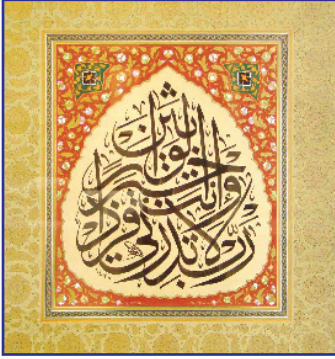 رب لا تذرني فردا وأنت خير الوارثين